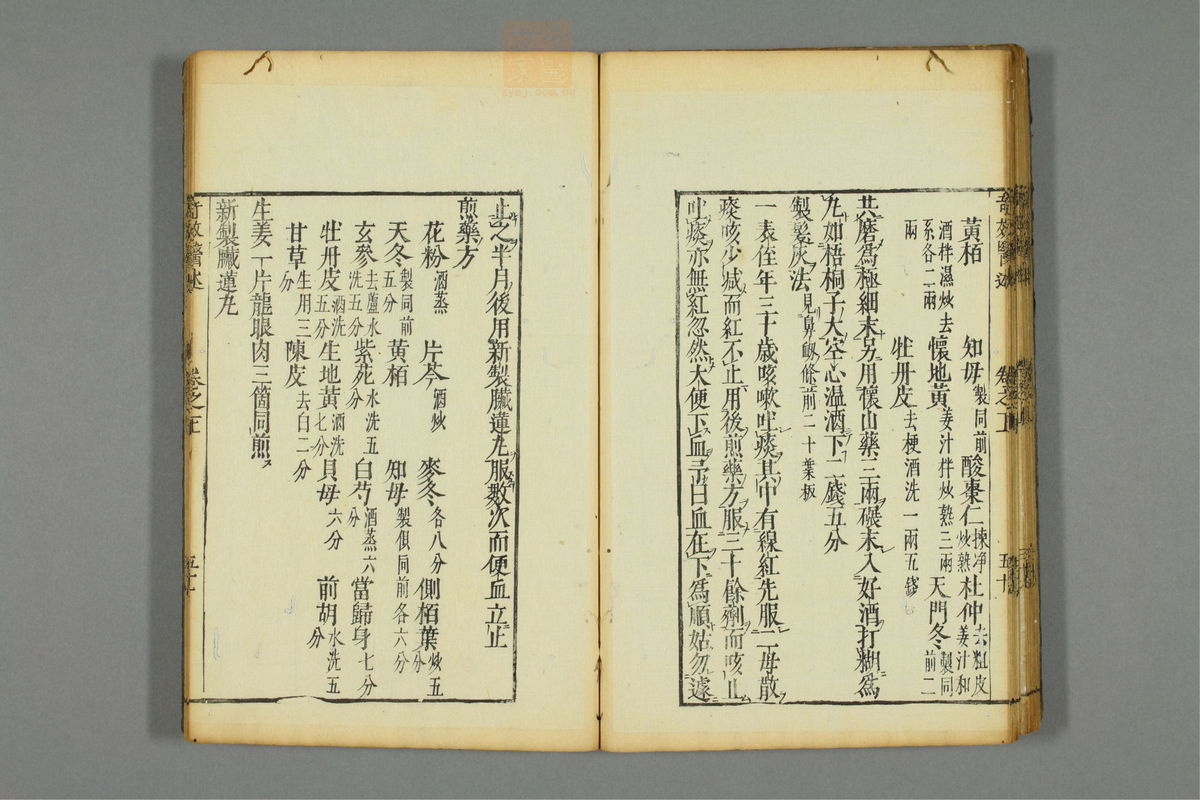 黃栢酒拌濕炒去 知母製同前酸棗仁揀净炒熟杜仲去粗皮姜汁和
系各二兩 懷地黃姜汁拌炒熟三兩天門冬製同前二
兩 牡丹皮去梗酒洗一兩五錢
共磨為極細末另用懷山藥三兩碾末入好酒打糊為
丸如梧桐子大空心溫酒下二錢五分
製髮灰法見鼻衂條前二十葉板
一表侄年三十歲咳嗽吐痰其中有線紅先服二母散
痰咳少减而紅不止用後煎藥方服三十餘劑而咳止
吐痰亦無紅忽然大便下血予曰血在下為順姑勿遽
止之半月後用新製臟連丸服數次而便血立止
煎藥方
花粉酒蒸 片芩酒炒 麥冬各八分 側栢葉炒五分
天冬製同前五分 黃栢 知母製俱同前各六分
玄參去蘆水洗五分 紫苑水洗五分 白芍酒蒸六分 當歸身七分
牡丹皮酒洗五分 生地黃酒洗七分 貝母六分 前胡水洗五分
甘草生用三分 陳皮去白二分
生姜一片龍眼肉三箇同煎
新製臟連丸
奇效醫述
卷之
五十
奇效醫述
卷之